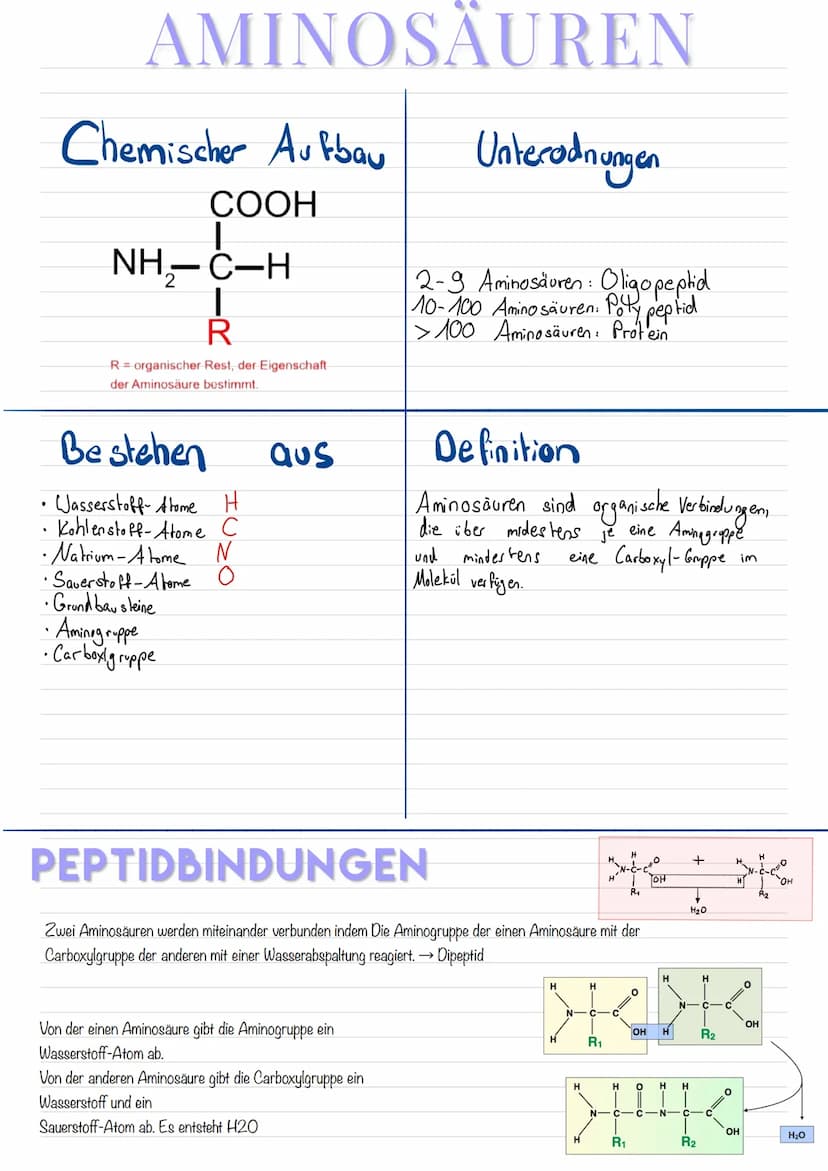 AMINOSÄUREN
Chemischer Aufbau
COOH
NH2—C—H
R
R = organischer Rest, der Eigenschaft
der Aminosäure bestimmt.
Unterodnungen
2-9 Aminosäuren: Oligopeptid
10-100 Aminosäuren: Polypeptid
>100 Aminosäuren: Protein
Bestehen aus
• Wasserstoff-Atome H
• Kohlenstoff-Atome C
• Natrium-Atome N
• Sauerstoff-Atome O
• Grundbausteine
• Aminogruppe
• Carboxlgruppe
Definition
Aminosäuren sind organische Verbindungen,
die über midestens je eine Aminogruppe
und mindestens eine Carboxyl-Gruppe im
Molekül verfügen.
PEPTIDBINDUNGEN
H H O + H H O
H N-C-C OH H N-C-C OH
R1 R2
H2O
Zwei Aminosäuren werden miteinander verbunden indem Die Aminogruppe der einen Aminosäure mit der
Carboxylgruppe der anderen mit einer Wasserabspaltung reagiert. → Dipeptid
Von der einen Aminosäure gibt die Aminogruppe ein
Wasserstoff-Atom ab.
Von der anderen Aminosäure gibt die Carboxylgruppe ein
Wasserstoff und ein
Sauerstoff-Atom ab. Es entsteht H2O
H H O H H O
N—C—C N—C—C
H R1 OH H R2 OH
H H O H H O
N—C—C—N—C—C
H R1 R2 OH
H2O